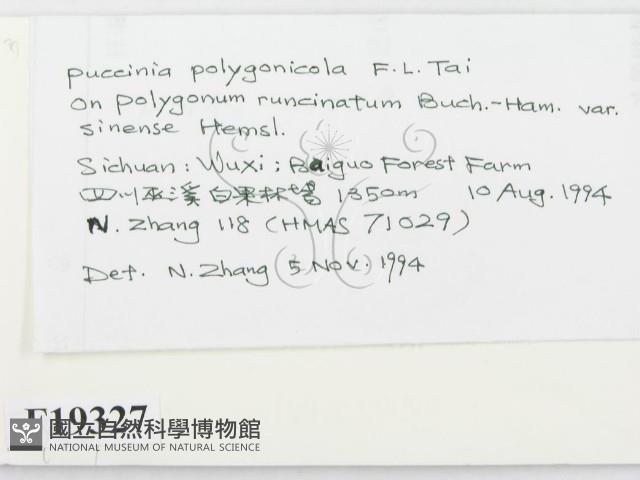 Puccinia polygonicola F.L. Tai
on Polygonum runcinatum Buch.-Ham. var.
sinense Hemsl.
Sichuan: Wuxi; Baiguo Forest Farm
四川巫溪白果林場 1350m 10 Aug. 1994
N. Zhang 118 (HMAS 71029)
Det. N. Zhang 5 Nov. 1994
F19327
國立自然科學博物館
NATIONAL MUSEUM OF NATURAL SCIENCE